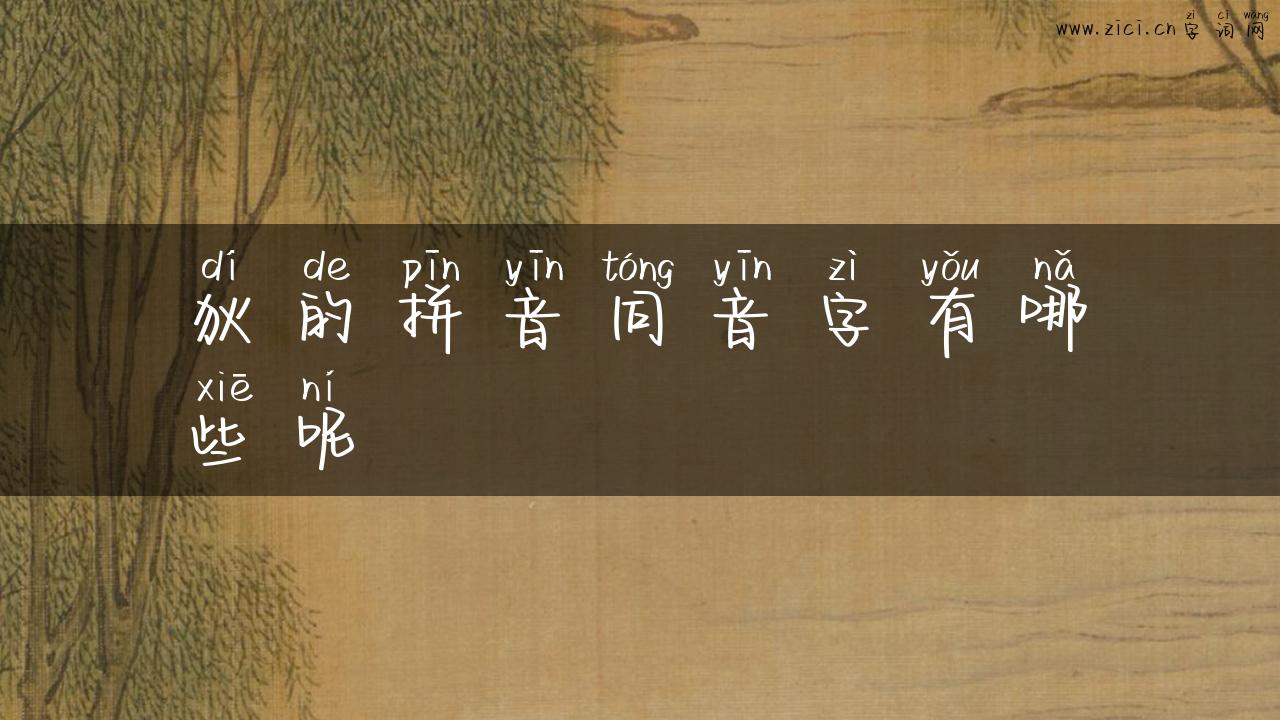 zì cí wǎng
www.zici.cn 字词网
dí de pīn yīn tóng yīn zì yǒu nǎ
狄的拼音同音字有哪
xiē ní
些呢